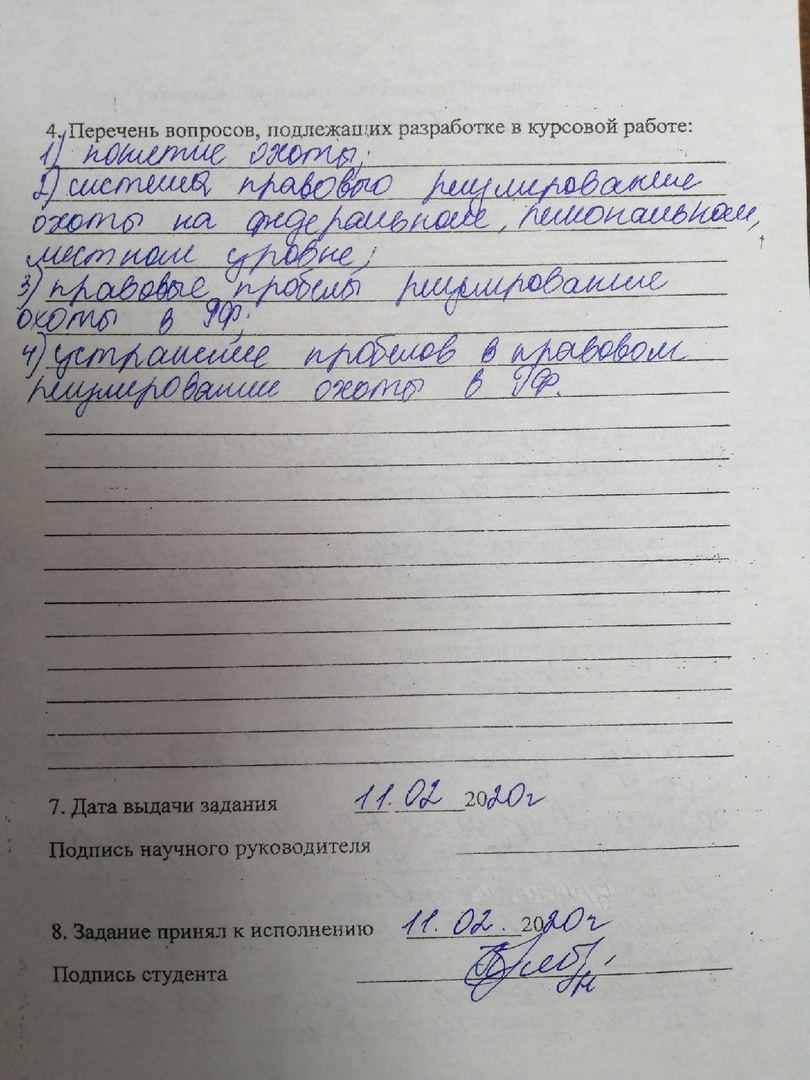 4. Перечень вопросов, подлежащих разработке в курсовой работе:
1) понятие охоты;
2) система правового регулирование
охоты на федеральном, региональном,
местном уровне;
3) правовые пробелы регулирование
охоты в РФ;
4) устранение пробелов в правовом
регулировании охоты в РФ.
7. Дата выдачи задания 11.02 2020г
Подпись научного руководителя
8. Задание принял к исполнению 11.02. 2020г
Подпись студента